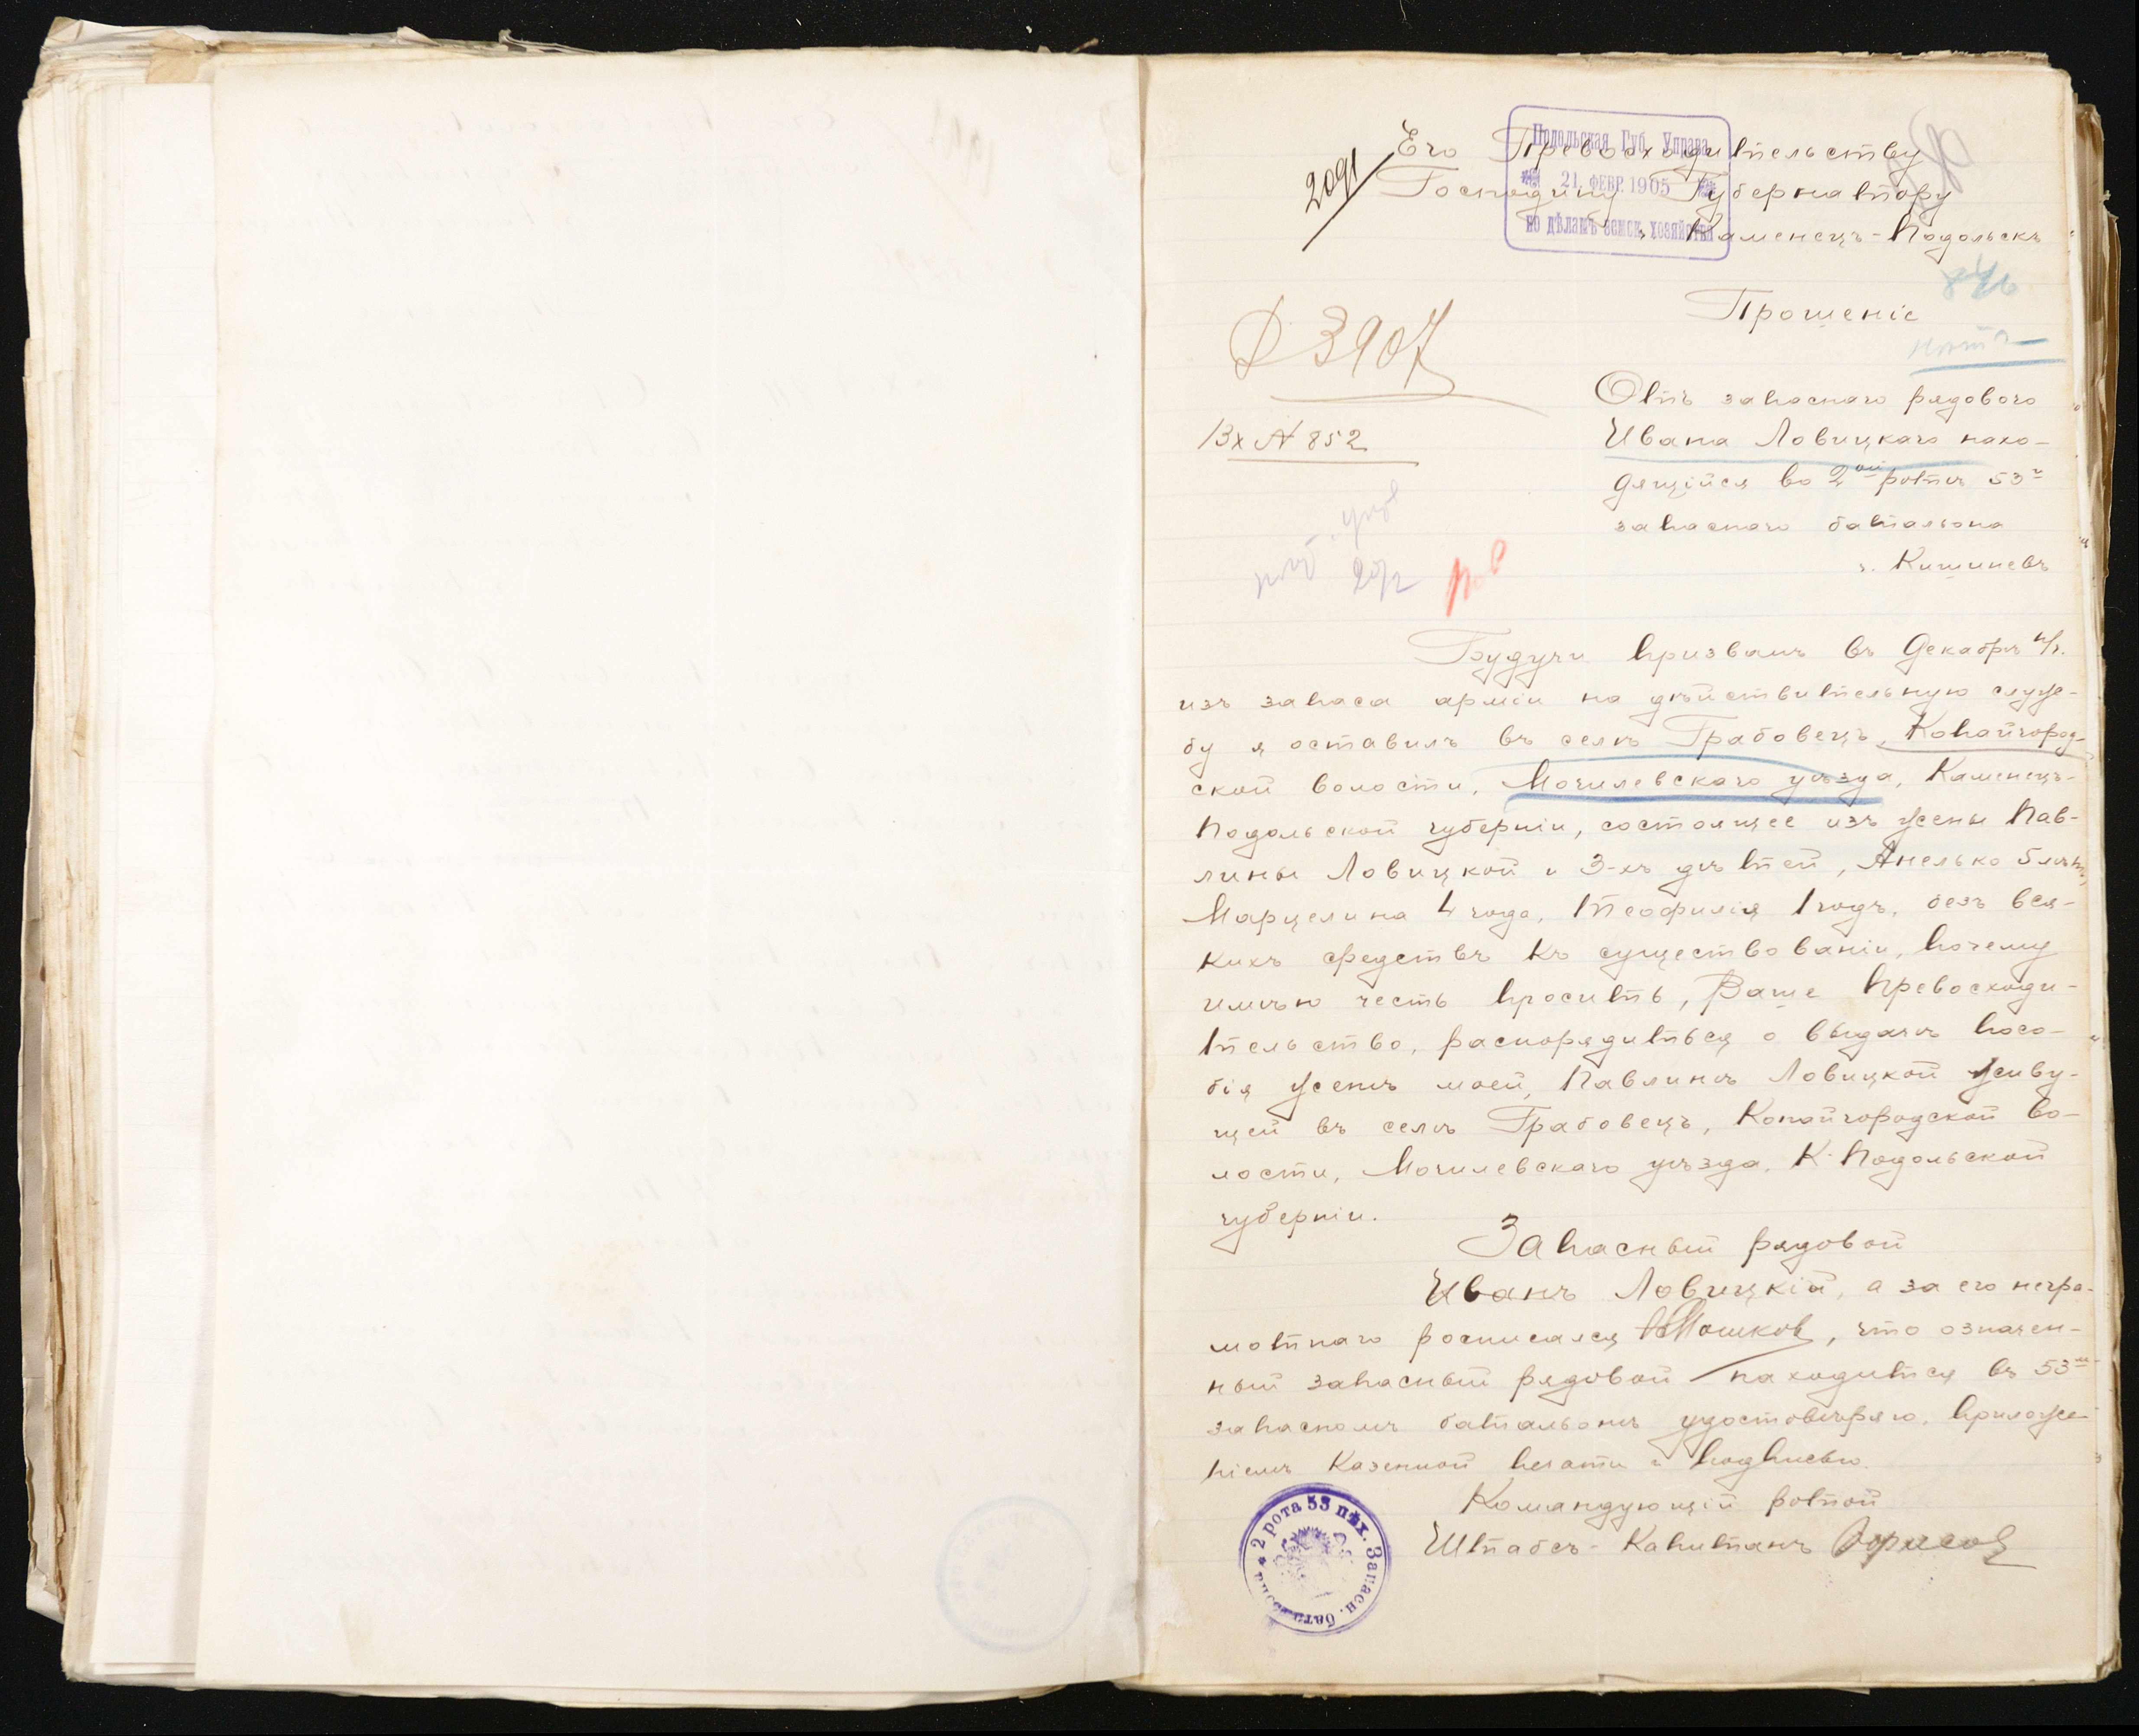 Подольская Губ. Управа
21. ФЕВР. 1905
по дѣламъ земск. хозяйства
2091
Его Превосходительству
Господину Губернатору
г. Каменецъ-Подольскъ
846
Прошеніе
Д 3907
Вх № 852
Отъ запаснаго рядового
Ивана Ловицкаго нахо-
дящійся во 2ой ротѣ 53г
запаснаго батальона
г. Кишиневъ
Будучи призванъ въ Декабрѣ п/г.
изъ запаса арміи на дѣйствительную служ-
бу я оставилъ въ селѣ Грабовецъ, Копайгород-
ской волости, Могилевскаго уѣзда, Каменецъ-
Подольской губерніи, состоящее изъ жены Пав-
лины Ловицкой и 3-хъ дѣтей, Анелько 5 лѣтъ,
Марцелина 4 года, Теофилія 1 годъ, безъ вся-
кихъ средствъ къ существованіи, почему
имѣю честь просить, Ваше Превосходи-
тельство, распорядиться о выдачѣ посо-
бія женѣ моей, Павлинѣ Ловицкой живу-
щей въ селѣ Грабовецъ, Копайгородской во-
лости, Могилевскаго уѣзда, К-Подольской
губерніи.
Запасный рядовой
Иванъ Ловицкій, а за его негра-
мотнаго росписался Мошков, что означен-
ный запасный рядовой находится въ 53м
запасномъ батальонѣ удостовѣряю, приложе-
ніемъ Казенной печати и подписью.
Командующій ротой
Штабсъ-Капитанъ Борисов
2 рота 53 пѣх. Запасн. батальона